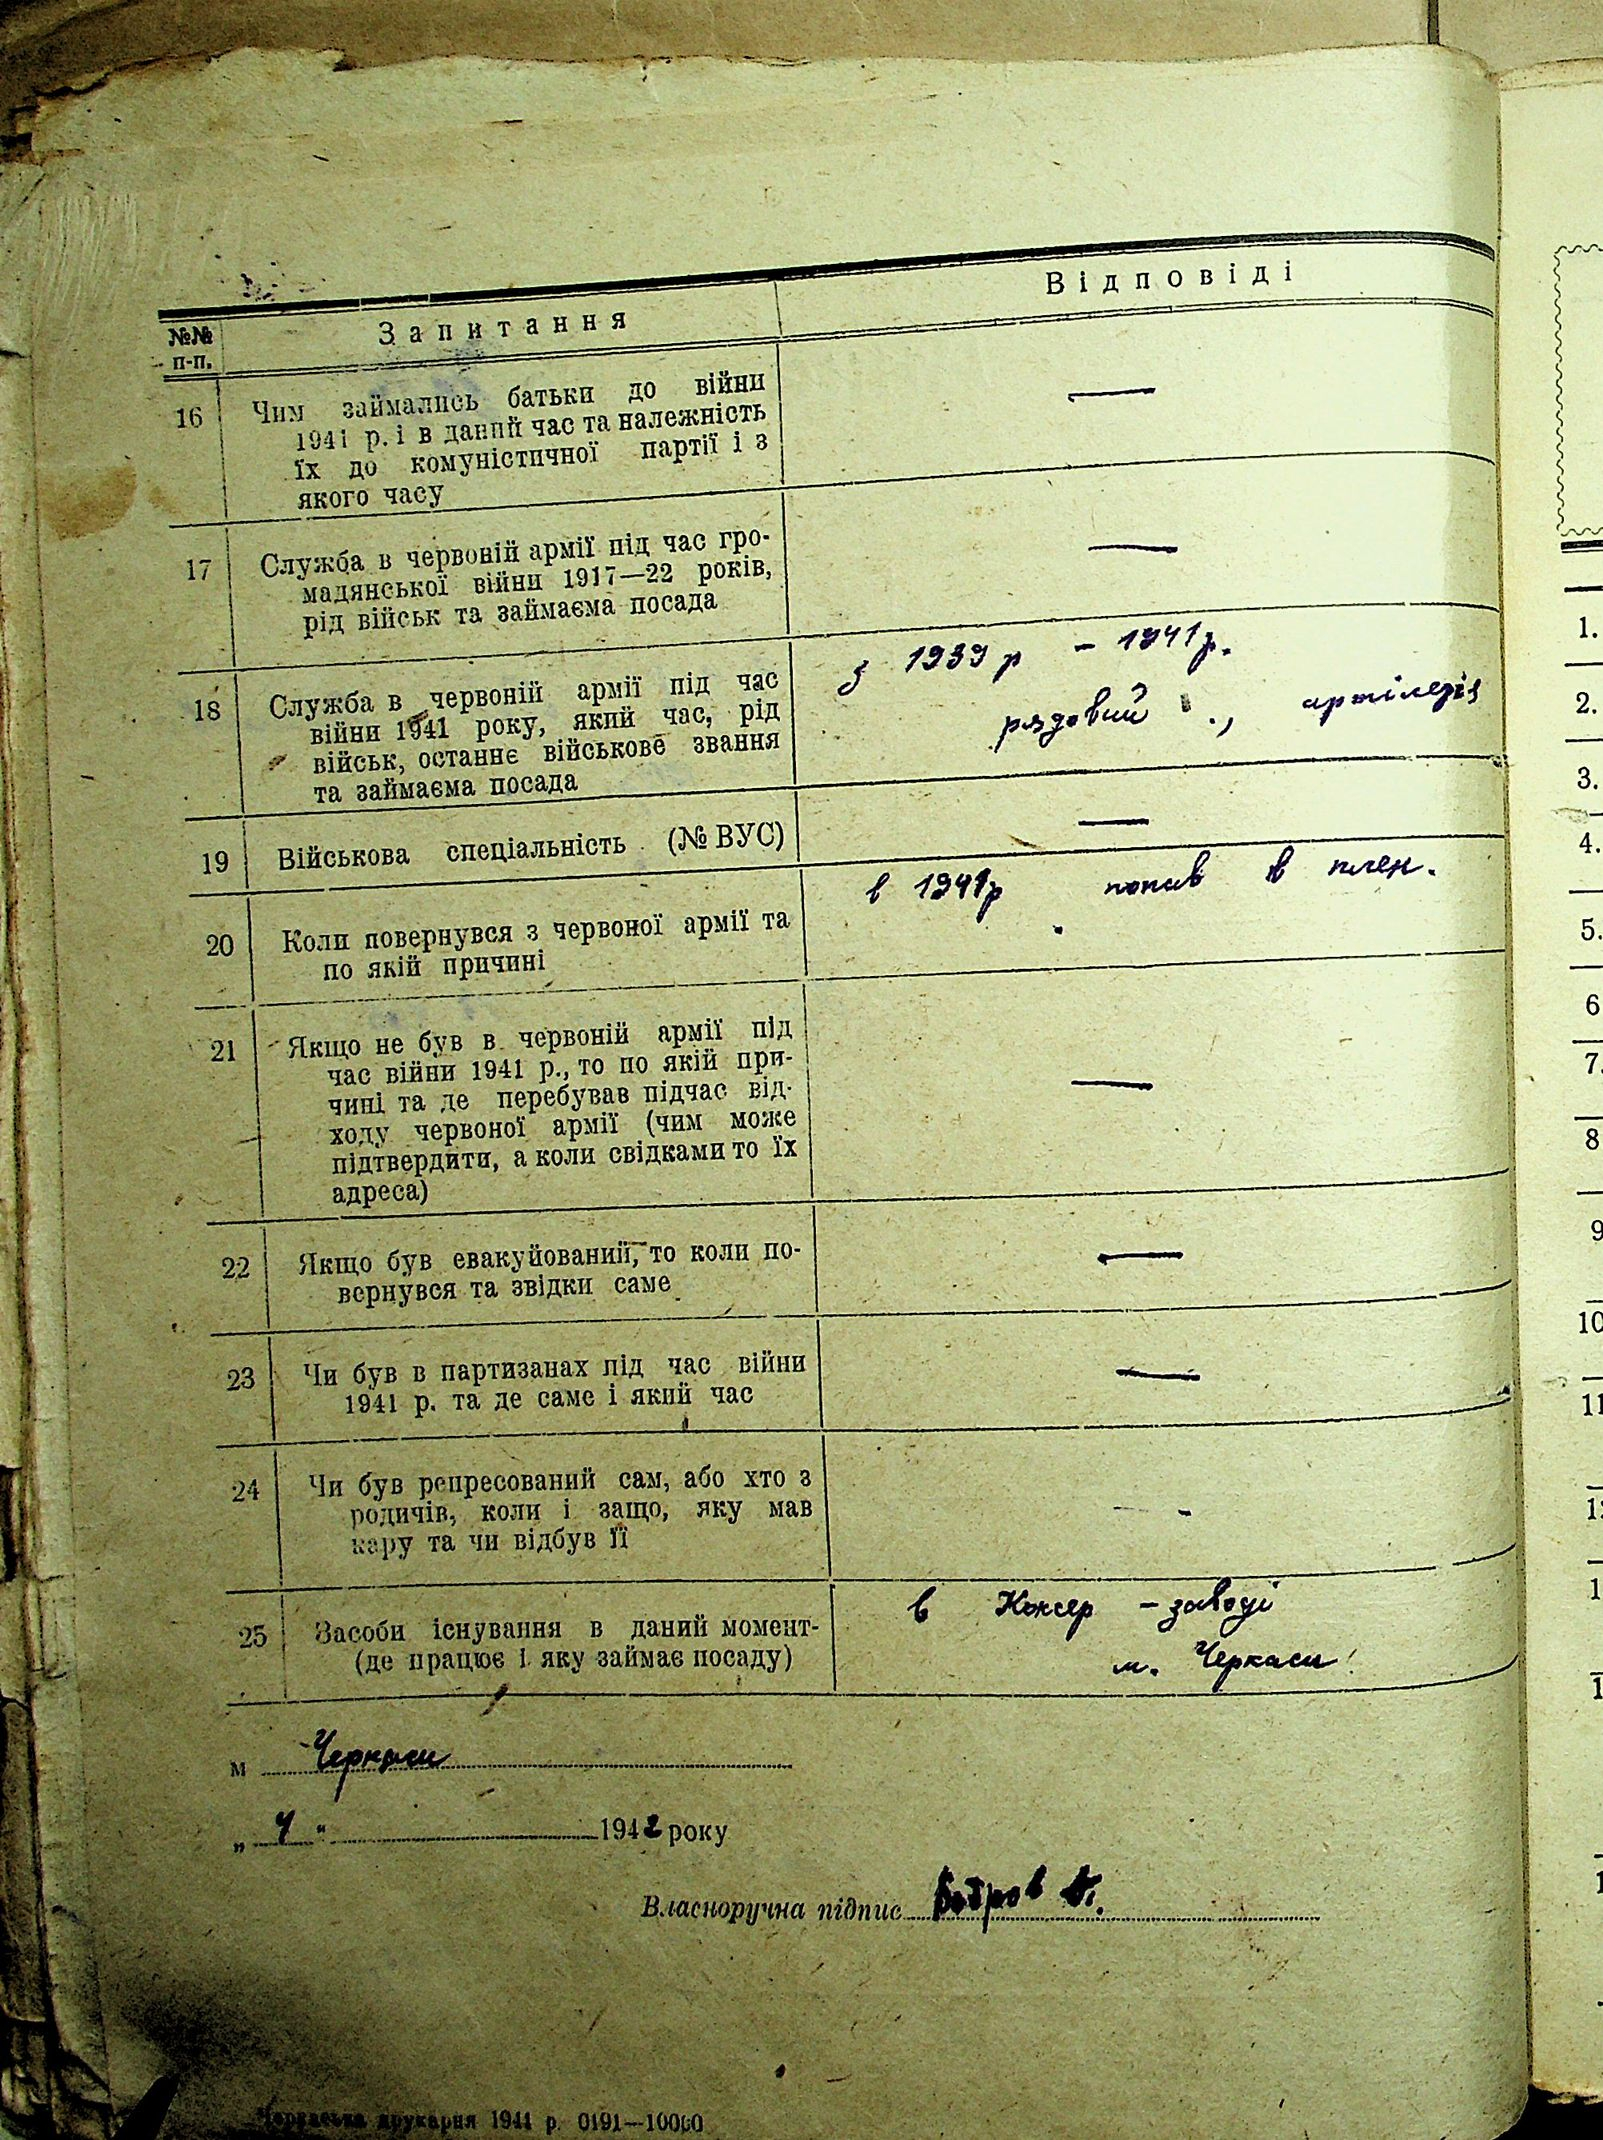 №№ п-п.
Запитання
Відповіді
16
Чим займались батьки до війни
1941 р. і в даний час та належність
їх до комуністичної партії і з
якого часу
—
17
Служба в червоній армії під час гро-
мадянської війни 1917—22 років,
рід військ та займаєма посада
—
18
Служба в червоній армії під час
війни 1941 року, який час, рід
військ, останнє військове звання
та займаєма посада
з 1939 р – 1941 р.
рядовий ., артілерія
19
Військова спеціальність (№ ВУС)
—
20
Коли повернувся з червоної армії та
по якій причині
в 1941 р попав в плен.
21
Якщо не був в червоній армії під
час війни 1941 р., то по якій при-
чині та де перебував підчас від-
ходу червоної армії (чим може
підтвердити, а коли свідками то їх
адреса)
—
22
Якщо був евакуйований, то коли по-
вернувся та звідки саме
—
23
Чи був в партизанах під час війни
1941 р. та де саме і який час
—
24
Чи був репресований сам, або хто з
родичів, коли і защо, яку мав
кару та чи відбув її
-
25
Засоби існування в даний момент-
(де працює і яку займає посаду)
в Консер – заводі
м. Черкаси
м Черкаси
„ 4 “ 1942 року
Власноручна підпис
Черкаська друкарня 1941 р. 0191—10000
1.
2.
3.
4.
5.
6
7.
8
9
10
11